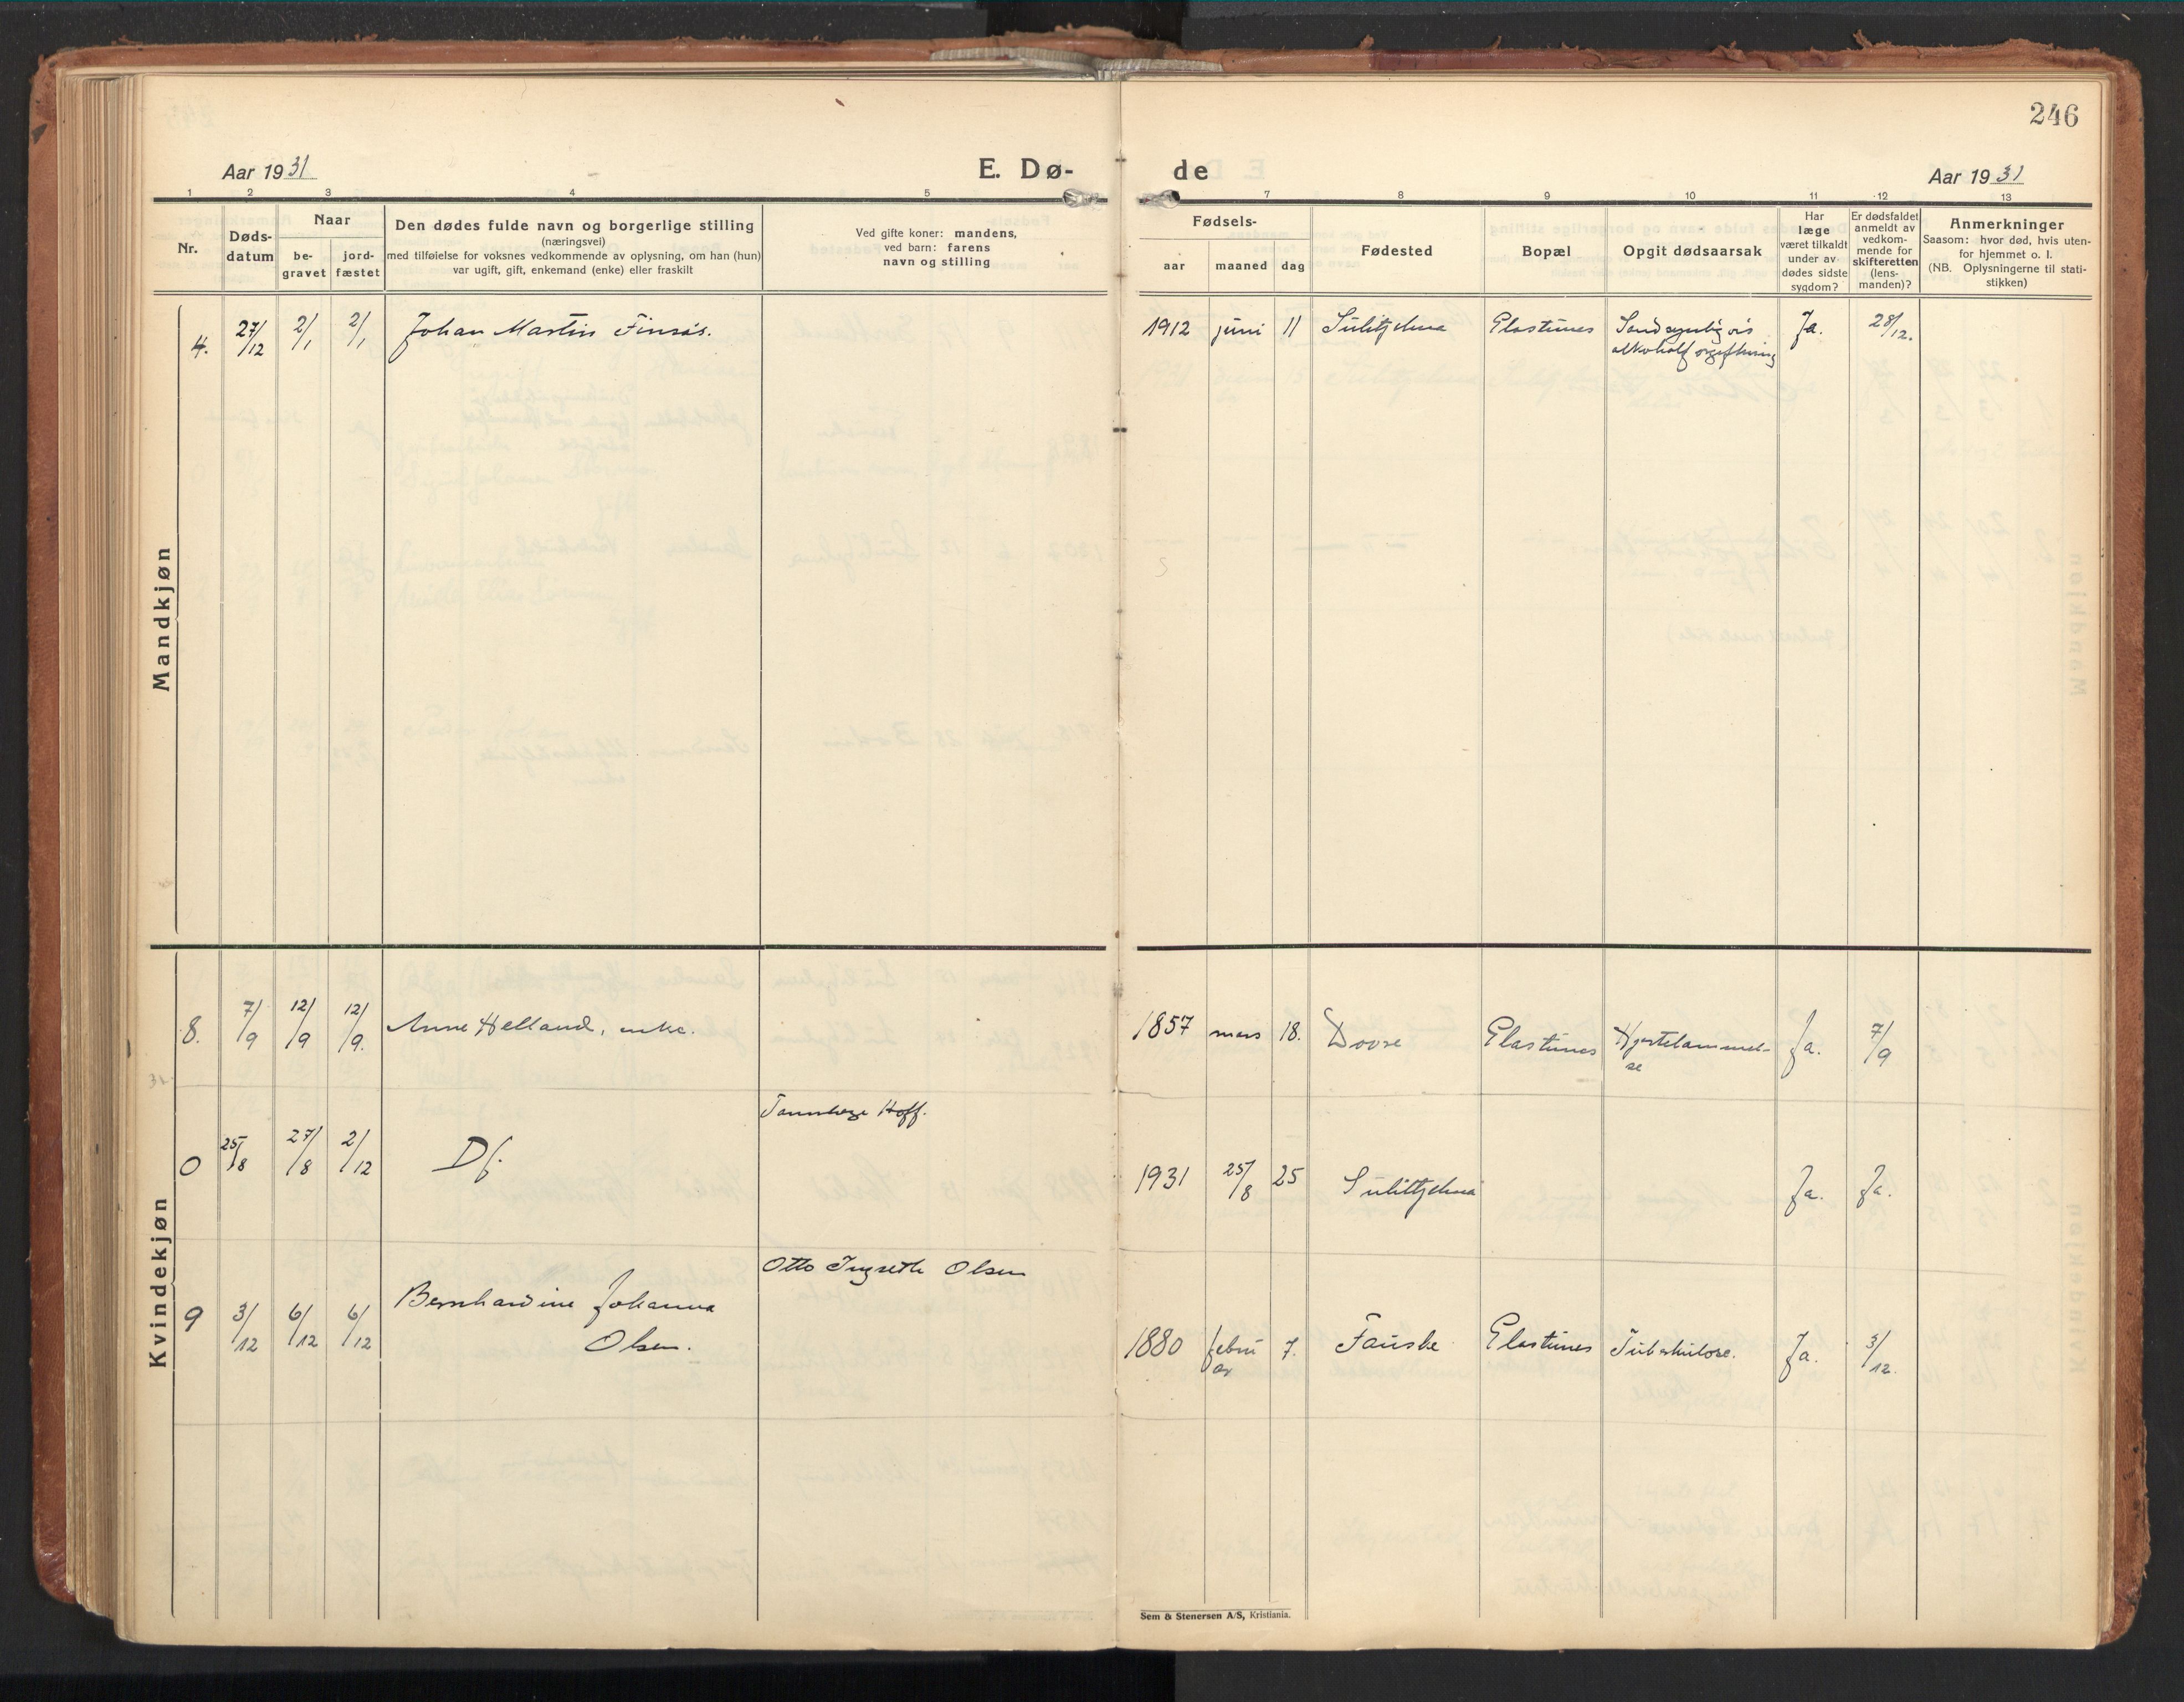 246
Aar 1931
E. Dø-
de
Aar 1931
1 2 3 4 5
7 8 9 10 11 12 13
Nr.
Døds-
datum
Naar
be-
gravet
jord-
fæstet
Den dødes fulde navn og borgerlige stilling
(næringsvei)
med tilføielse for voksnes vedkommende av oplysning, om han (hun)
var ugift, gift, enkemand (enke) eller fraskilt
Ved gifte koner: mandens,
ved barn: farens
navn og stilling
Fødsels-
aar maaned dag
Fødested
Bopæl
Opgit dødsaarsak
Har
læge
været tilkaldt
under av-
dødes sidste
sygdom?
Er dødsfaldet
anmeldt av
vedkom-
mende for
skifteretten
(lens-
manden)?
Anmerkninger
Saasom: hvor død, hvis uten-
for hjemmet o. l.
(NB. Oplysningerne til stati-
stikken)
Mandkjøn
4. 27/12 2/1 2/1 Johan Martin Finsås. 1912 juni 11 Sulitjelma Glastunes Sandsynligvis Ja. 28/12.
alkoholforgiftning
Kvindekjøn
8. 7/9 12/9 12/9. Anne Helland, enke. 1857 mars 18. Dovre Glastunes Hjertelammel- Ja. 7/9
se
Tannlæge Hoff.
0 25/8 27/8 2/12 Df. 1931 25/8 25 Sulitjelma Ja. Ja.
Otto Ingreth Olsen
9 3/12 6/12 6/12 Bernhardine Johanna
Olsen. 1880 febru 7. Fauske Glastunes Tuberkulose. Ja. 3/12.
ar
Sem & Stenersen A/S, Kristiania.